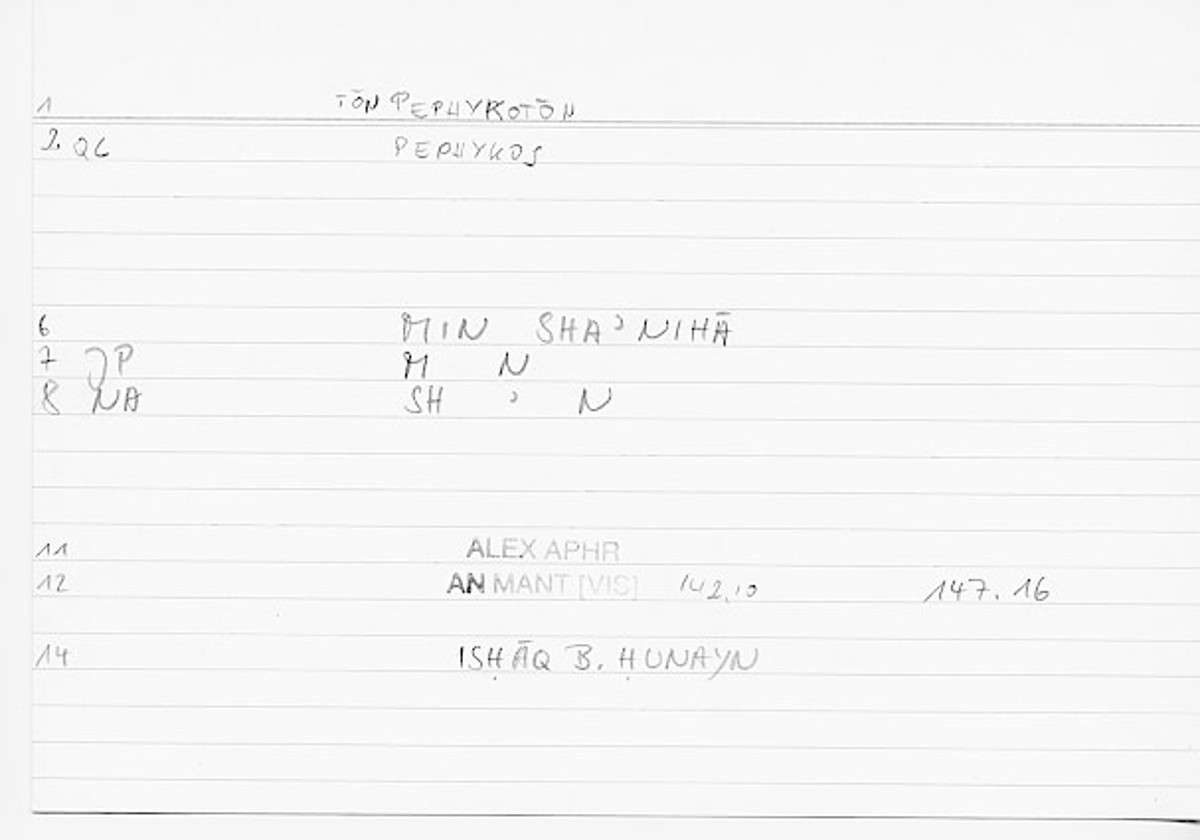 1 TŌN PEPHYKOTŌN
2. QL PEPHYKOS
6 MIN SHA'NIHĀ
7 JP M N
8 NA SH ' N
11 ALEX APHR
12 AN MANT [VIS] 142.10 147.16
14 ISḤĀQ B. ḤUNAYN